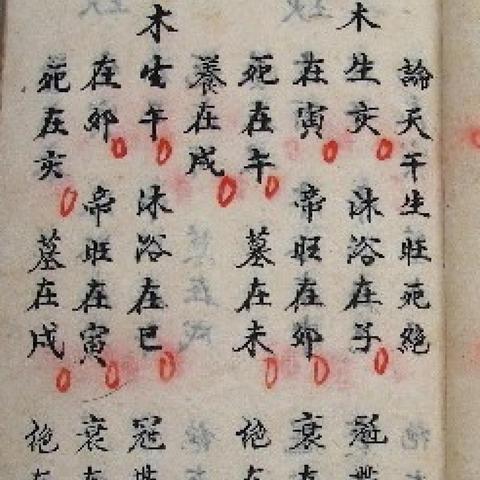 論天干生旺死絕
木生亥沐浴在子冠
在寅帝旺在卯衰在
死在午墓在未絕在
養在戌
木生午沐浴在巳冠
在卯帝旺在寅衰在
死在亥墓在戌絕在